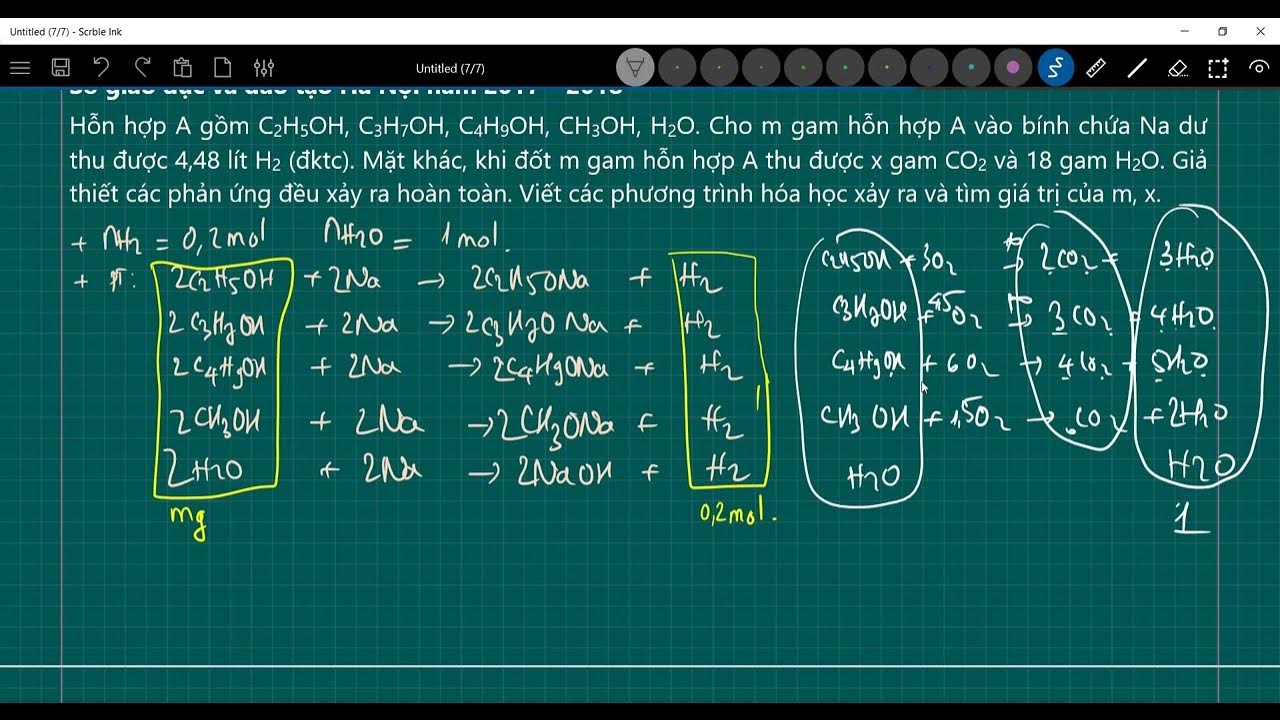 Untitled (7/7) - Scrble Ink
Untitled (7/7)
Sở giáo dục và đào tạo Hà Nội năm 2017 – 2018
Hỗn hợp A gồm C₂H₅OH, C₃H₇OH, C₄H₉OH, CH₃OH, H₂O. Cho m gam hỗn hợp A vào bính chứa Na dư
thu được 4,48 lít H₂ (đktc). Mặt khác, khi đốt m gam hỗn hợp A thu được x gam CO₂ và 18 gam H₂O. Giả
thiết các phản ứng đều xảy ra hoàn toàn. Viết các phương trình hóa học xảy ra và tìm giá trị của m, x.
+ nH₂ = 0,2mol nH₂O = 1 mol.
+ PT: 2C₂H₅OH + 2Na → 2C₂H₅ONa + H₂
2C₃H₇OH + 2Na → 2C₃H₇ONa + H₂
2C₄H₉OH + 2Na → 2C₄H₉ONa + H₂
2CH₃OH + 2Na → 2CH₃ONa + H₂
2H₂O + 2Na → 2NaOH + H₂
mg 0,2mol.
C₂H₅OH + 3O₂ → 2CO₂ + 3H₂O
C₃H₇OH + 4,5O₂ → 3CO₂ + 4H₂O
C₄H₉OH + 6O₂ → 4CO₂ + 5H₂O
CH₃OH + 1,5O₂ → CO₂ + 2H₂O
H₂O H₂O
1